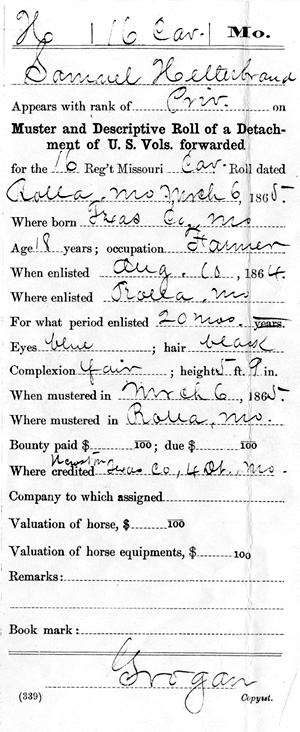 H | 16 Cav. | Mo.
Samuel Helterbrand
Appears with rank of Priv. on
Muster and Descriptive Roll of a Detach-
ment of U. S. Vols. forwarded
for the 16 Reg't Missouri Cav. Roll dated
Rolla, Mo March 6, 1865.
Where born Texas Co, Mo
Age 18 years; occupation Farmer
When enlisted Aug. 10, 1864.
Where enlisted Rolla, Mo
For what period enlisted 20 mos. years.
Eyes blue; hair black
Complexion fair; height 5 ft. 9 in.
When mustered in March 6, 1865.
Where mustered in Rolla, Mo.
Bounty paid $ 100; due $ 100
Where credited Texas Co, 4 Dt., Mo.
Company to which assigned
Valuation of horse, $ 100
Valuation of horse equipments, $ 100
Remarks:
Book mark:
Grogan
(339) Copyist.